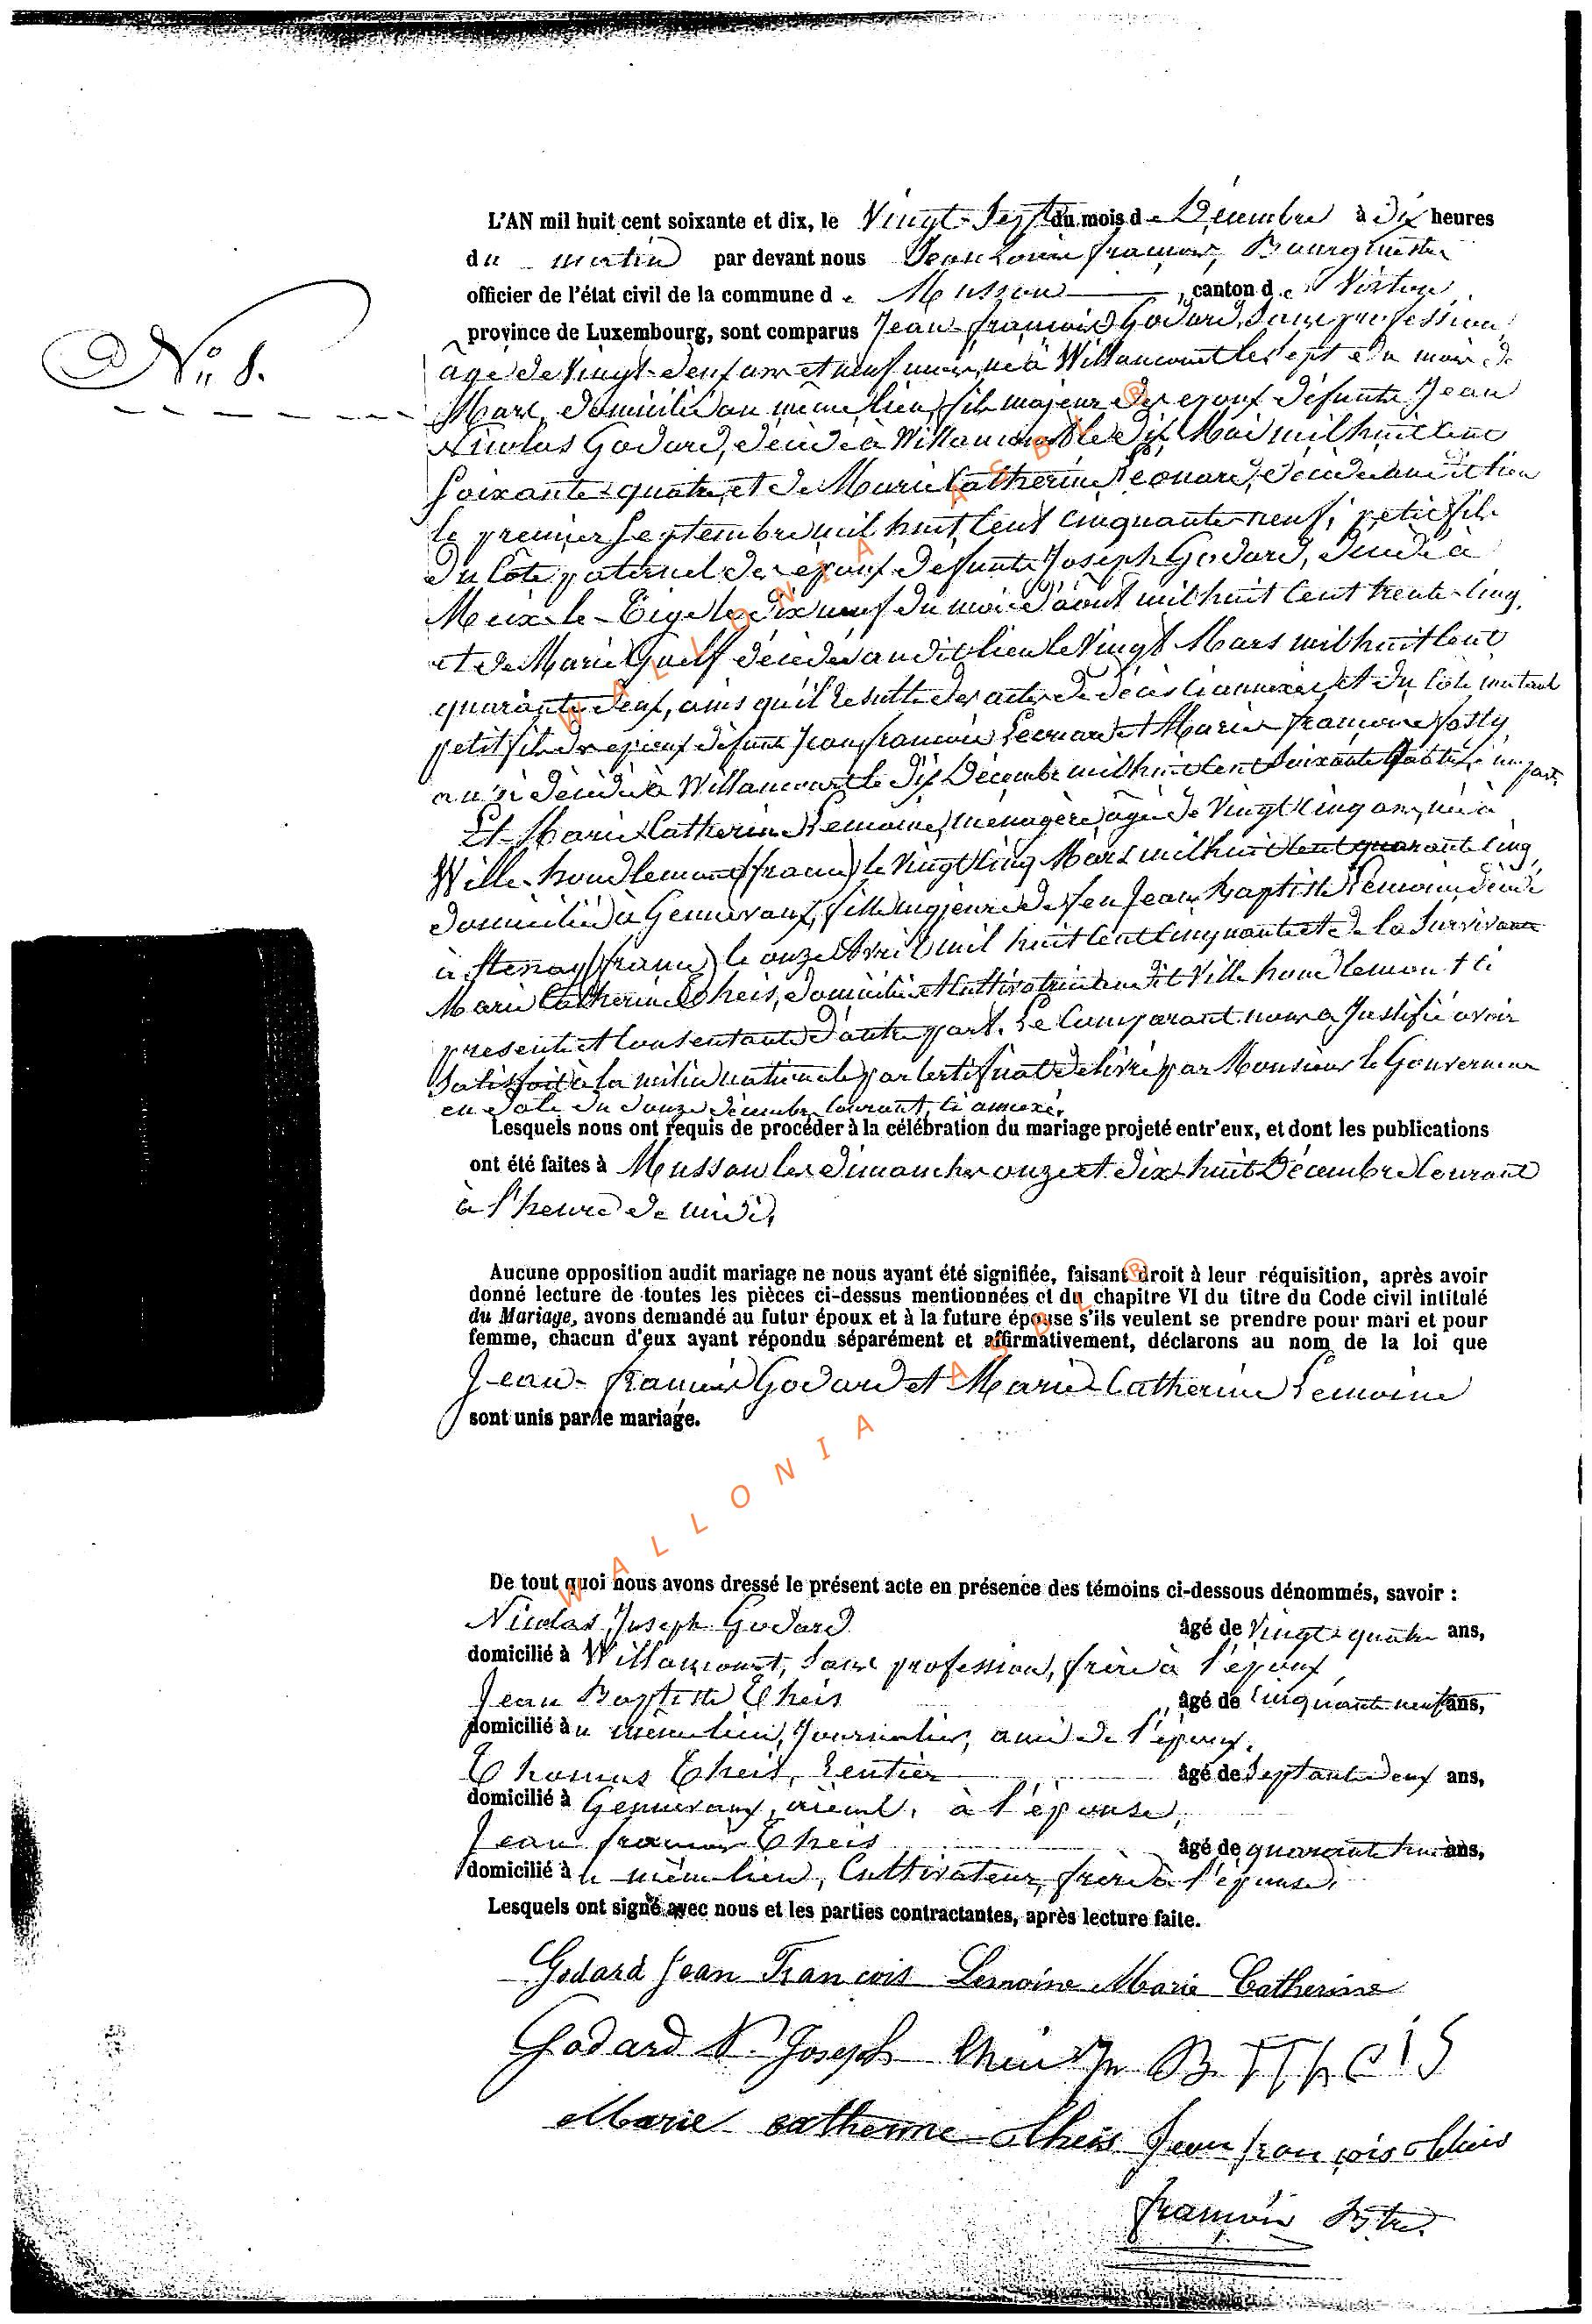 L'AN mil huit cent soixante et dix, le Vingt-Sept du mois de Décembre à dix heures
du matin par devant nous Jean Louis françois, Bourgmestre
officier de l'état civil de la commune de Musson, canton de Virton,
province de Luxembourg, sont comparus Jean-françois Godard, Sans profession,
N° 8.
âgé de Vingt-deux ans et neuf mois, né à Willancourt le sept du mois de
Mars, domicilié au même lieu, fils majeur des époux défunts Jean
Nicolas Godard, décédé à Willancourt le dix Mai mil huit cent
soixante-quatre, et de Marie Catherine Leonard, décédée au dit lieu
le premier Septembre mil huit cent cinquante-neuf, petit fils
du côté paternel des époux défunts Joseph Godard, décédé à
Meix-le-Tige le dix neuf du mois d'août mil huit cent trente-cinq,
et de Marie décédée au dit lieu le vingt Mars mil huit cent
quarante deux, ainsi qu'il résulte des actes de décès ci annexés, et du côté maternel
petit fils des époux défunts Jean françois Leonard et Marie françoise
aussi décédé à Willancourt le dix Décembre mil huit cent soixante d'une part,
Et Marie Catherine Lemoine, ménagère, âgée de Vingt cinq ans, née à
Ville-houdlemont (france) le vingt cinq Mars mil huit cent quarante cinq,
domiciliée à Gennevaux, fille majeure de feu Jean Baptiste Lemoine, décédé
à Stenay (france) le onze Avril mil huit cent cinquante et de la Survivante
Marie Catherine Theis, domiciliée et Cultivatrice au dit Ville houdlemont ci
présente et consentante d'autre part. Le Comparant nous a justifié avoir
Satisfait à la milice nationale par certificat délivré par Monsieur le Gouverneur
en date du douze décembre courant, ci annexé.
Lesquels nous ont requis de procéder à la célébration du mariage projeté entr'eux, et dont les publications
ont été faites à Musson les dimanches onze et dix-huit Décembre Courant
à l'heure de midi,
Aucune opposition audit mariage ne nous ayant été signifiée, faisant droit à leur réquisition, après avoir
donné lecture de toutes les pièces ci-dessus mentionnées et du chapitre VI du titre du Code civil intitulé
du Mariage, avons demandé au futur époux et à la future épouse s'ils veulent se prendre pour mari et pour
femme, chacun d'eux ayant répondu séparément et affirmativement, déclarons au nom de la loi que
Jean-françois Godard et Marie-Catherine Lemoine
sont unis par le mariage.
WALLONIA ASBL ®
De tout quoi nous avons dressé le présent acte en présence des témoins ci-dessous dénommés, savoir :
Nicolas Joseph Godard âgé de Vingt-quatre ans,
domicilié à Willancourt, Sans profession, frère à l'époux,
Jean Baptiste Theis âgé de Cinquante-neuf ans,
domicilié au même lieu, Journalier, ami de l'époux.
Thomas Theis, rentier âgé de Septante deux ans,
domicilié à Gennevaux, aïeul, à l'épouse,
Jean françois Theis âgé de quarante ans,
domicilié à le même lieu, Cultivateur, frère à l'épouse.
Lesquels ont signé avec nous et les parties contractantes, après lecture faite.
Godard Jean François Lemoine Marie Catherine
Godard N. Joseph Theis J B TThEiS
Marie catherine Theis Jean françois Theis
françois Bgtre.